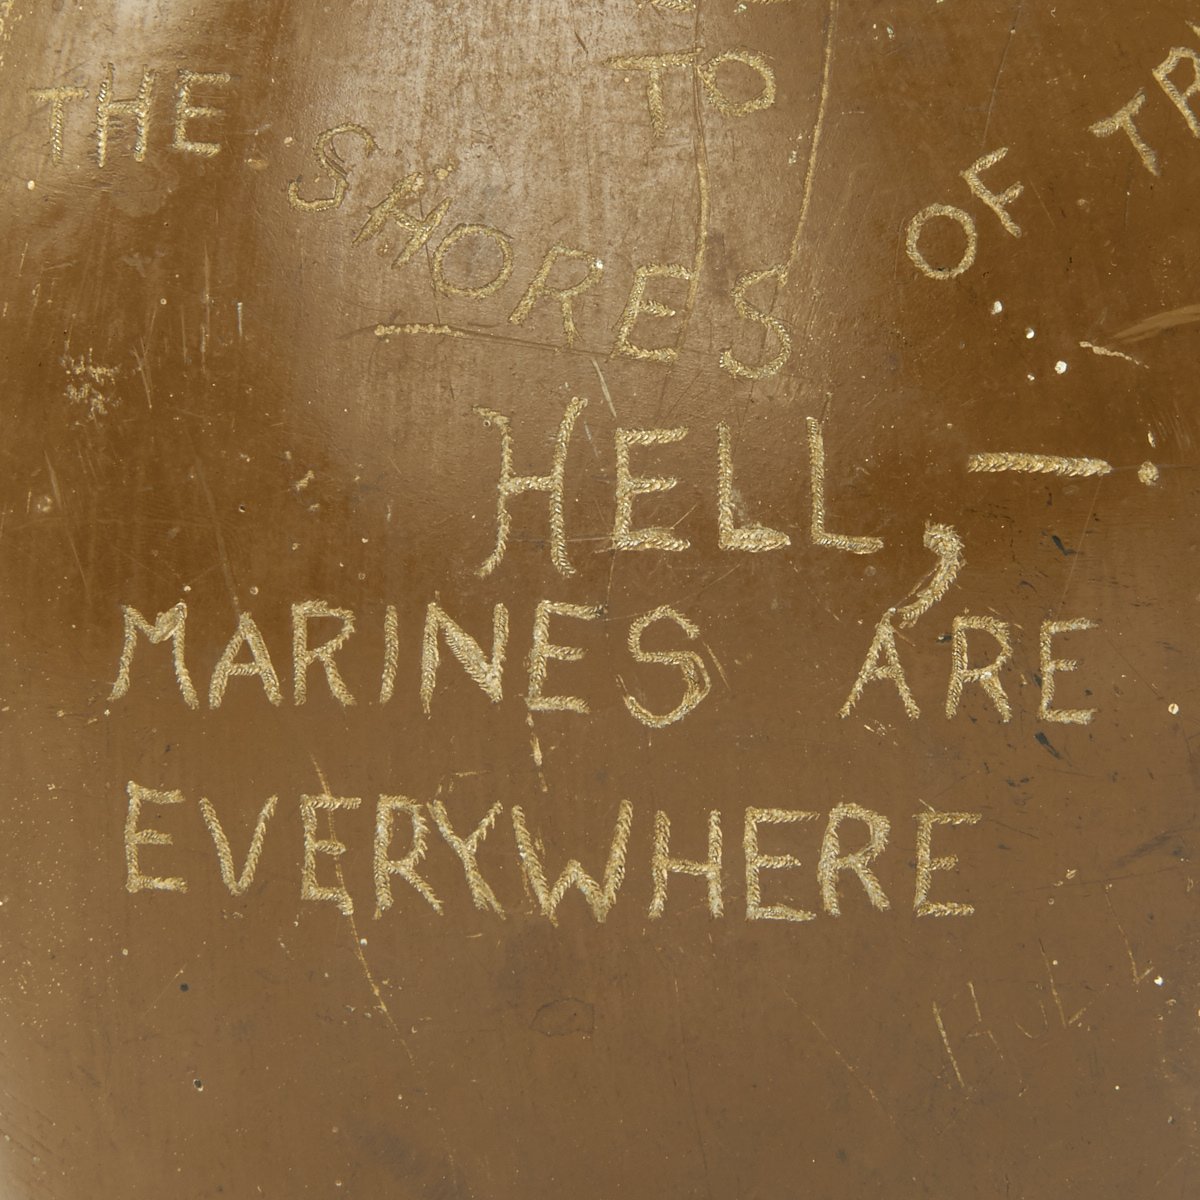 TO
THE SHORES OF
HELL,
MARINES ARE
EVERYWHERE